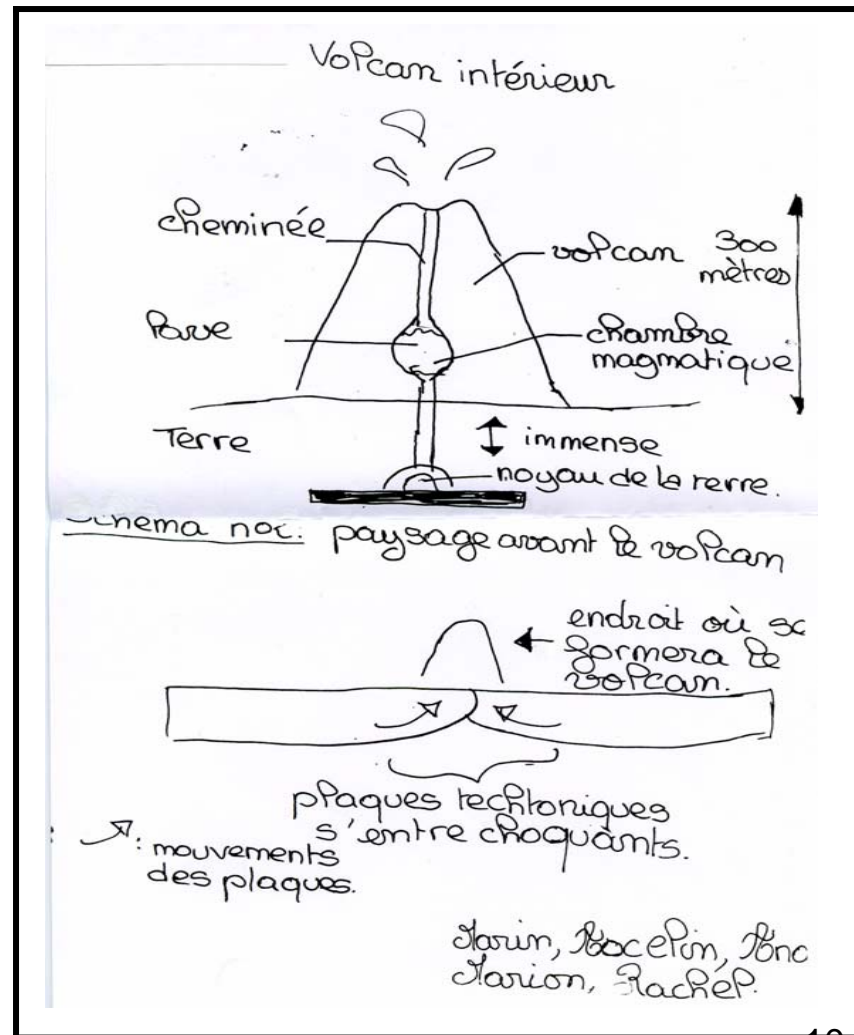 Volcan intérieur
cheminée
volcan
300
mètres
lave
chambre
magmatique
Terre
immense
noyau de la terre.
paysage avant le volcan
endroit où se
formera le
volcan.
plaques techtoniques
s'entre choquants.
: mouvements
des plaques.
Marin,
Marion, Rachel.